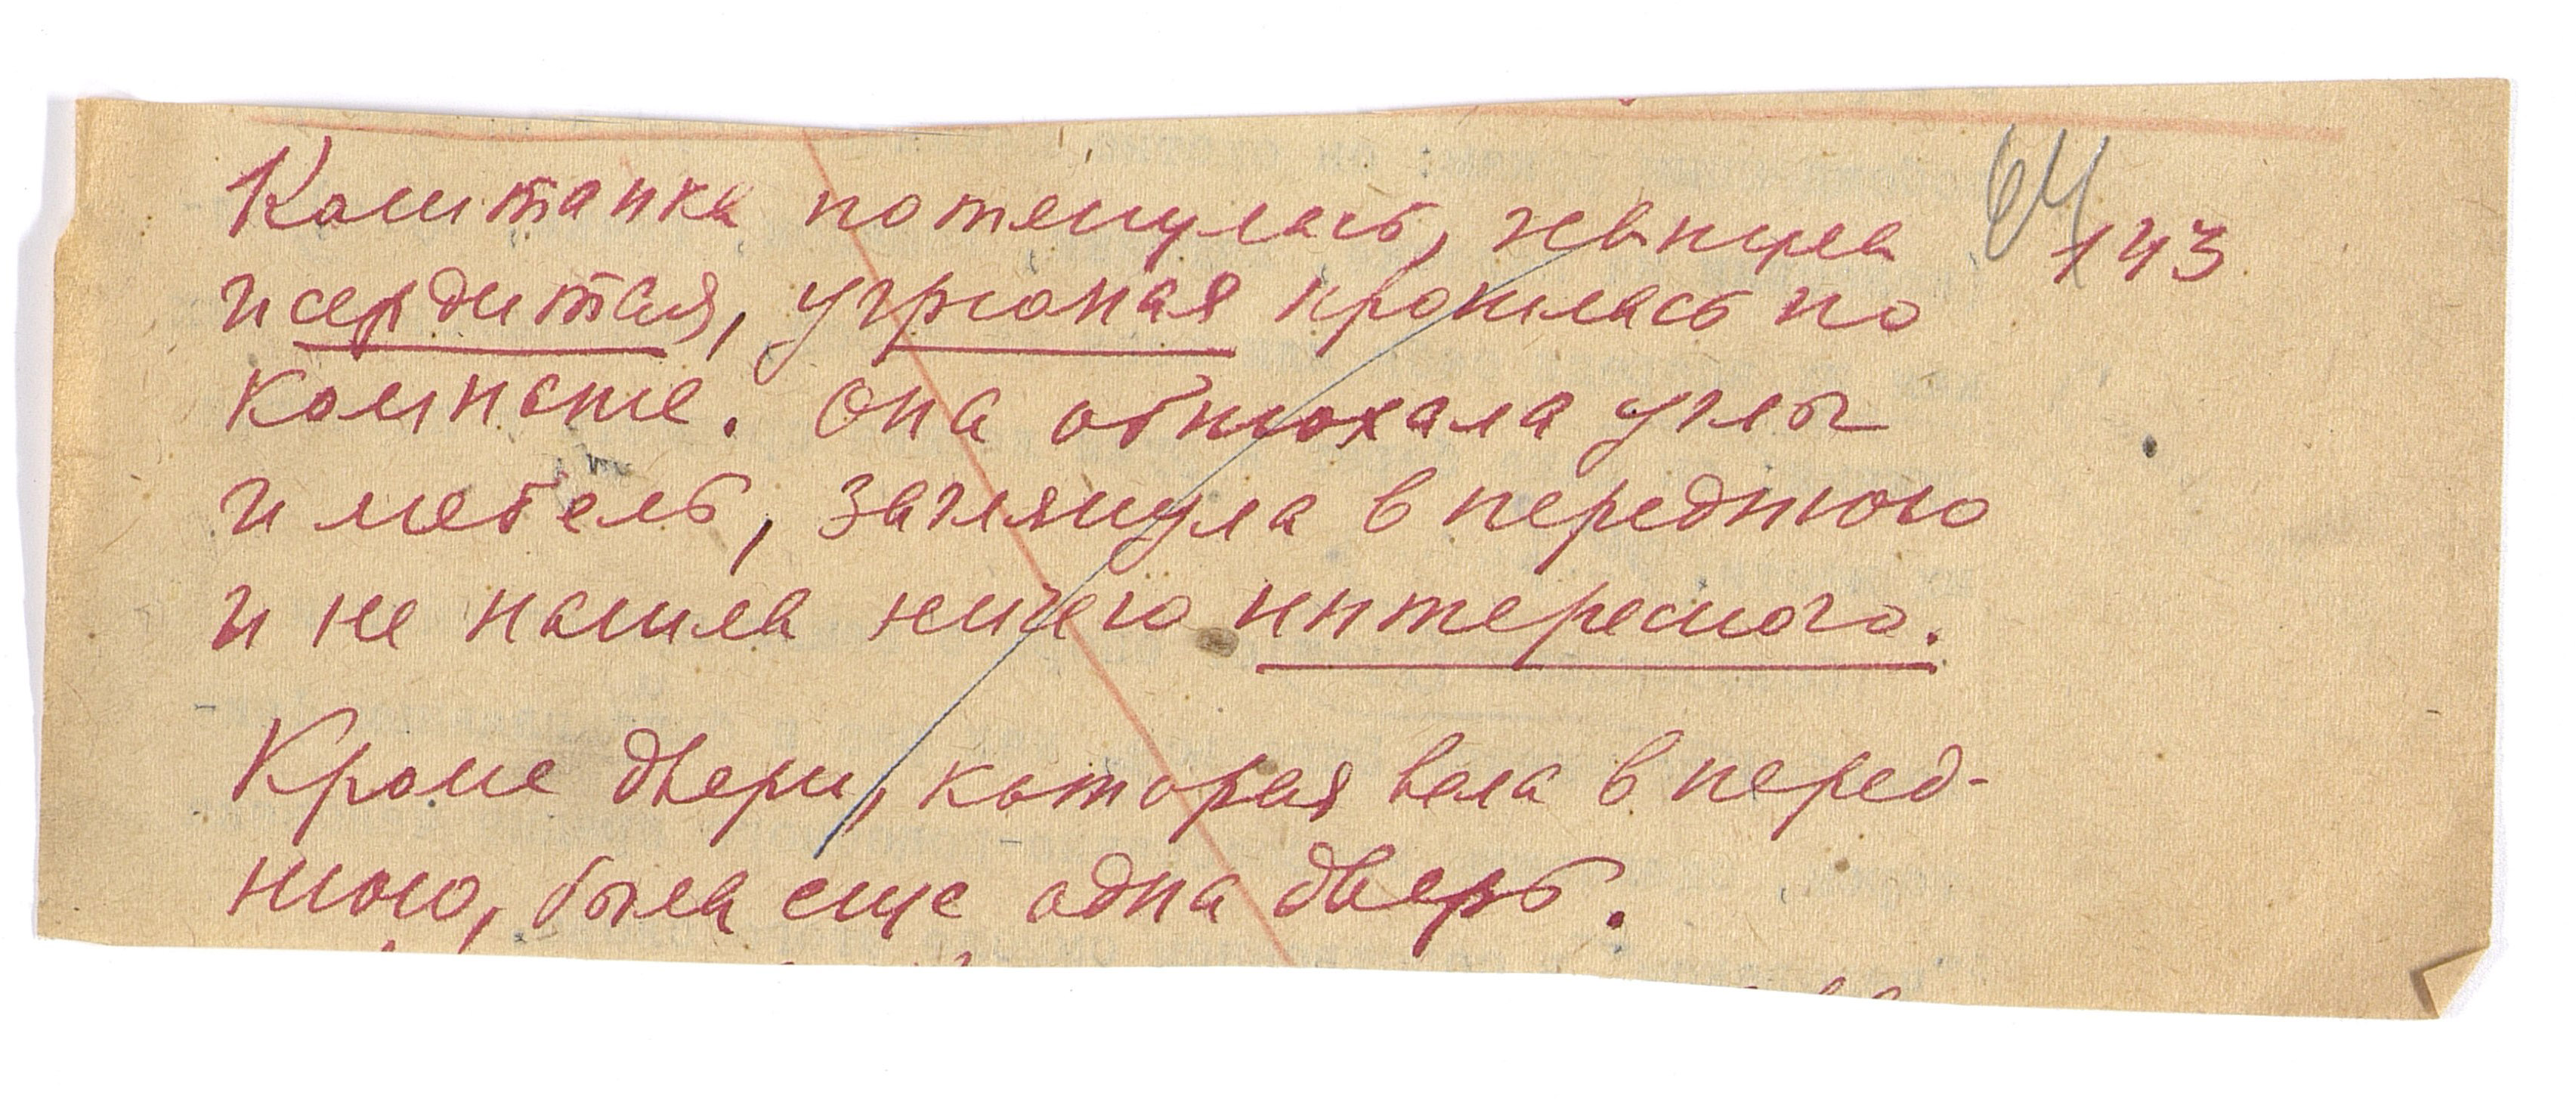 Каштанка потянулась, зевнула 64 143
и сердитая, угрюмая прошлась по
комнате. Она обнюхала углы
и мебель, заглянула в переднюю
и не нашла ничего интересного.
Кроме двери, которая вела в перед-
нюю, была еще одна дверь.